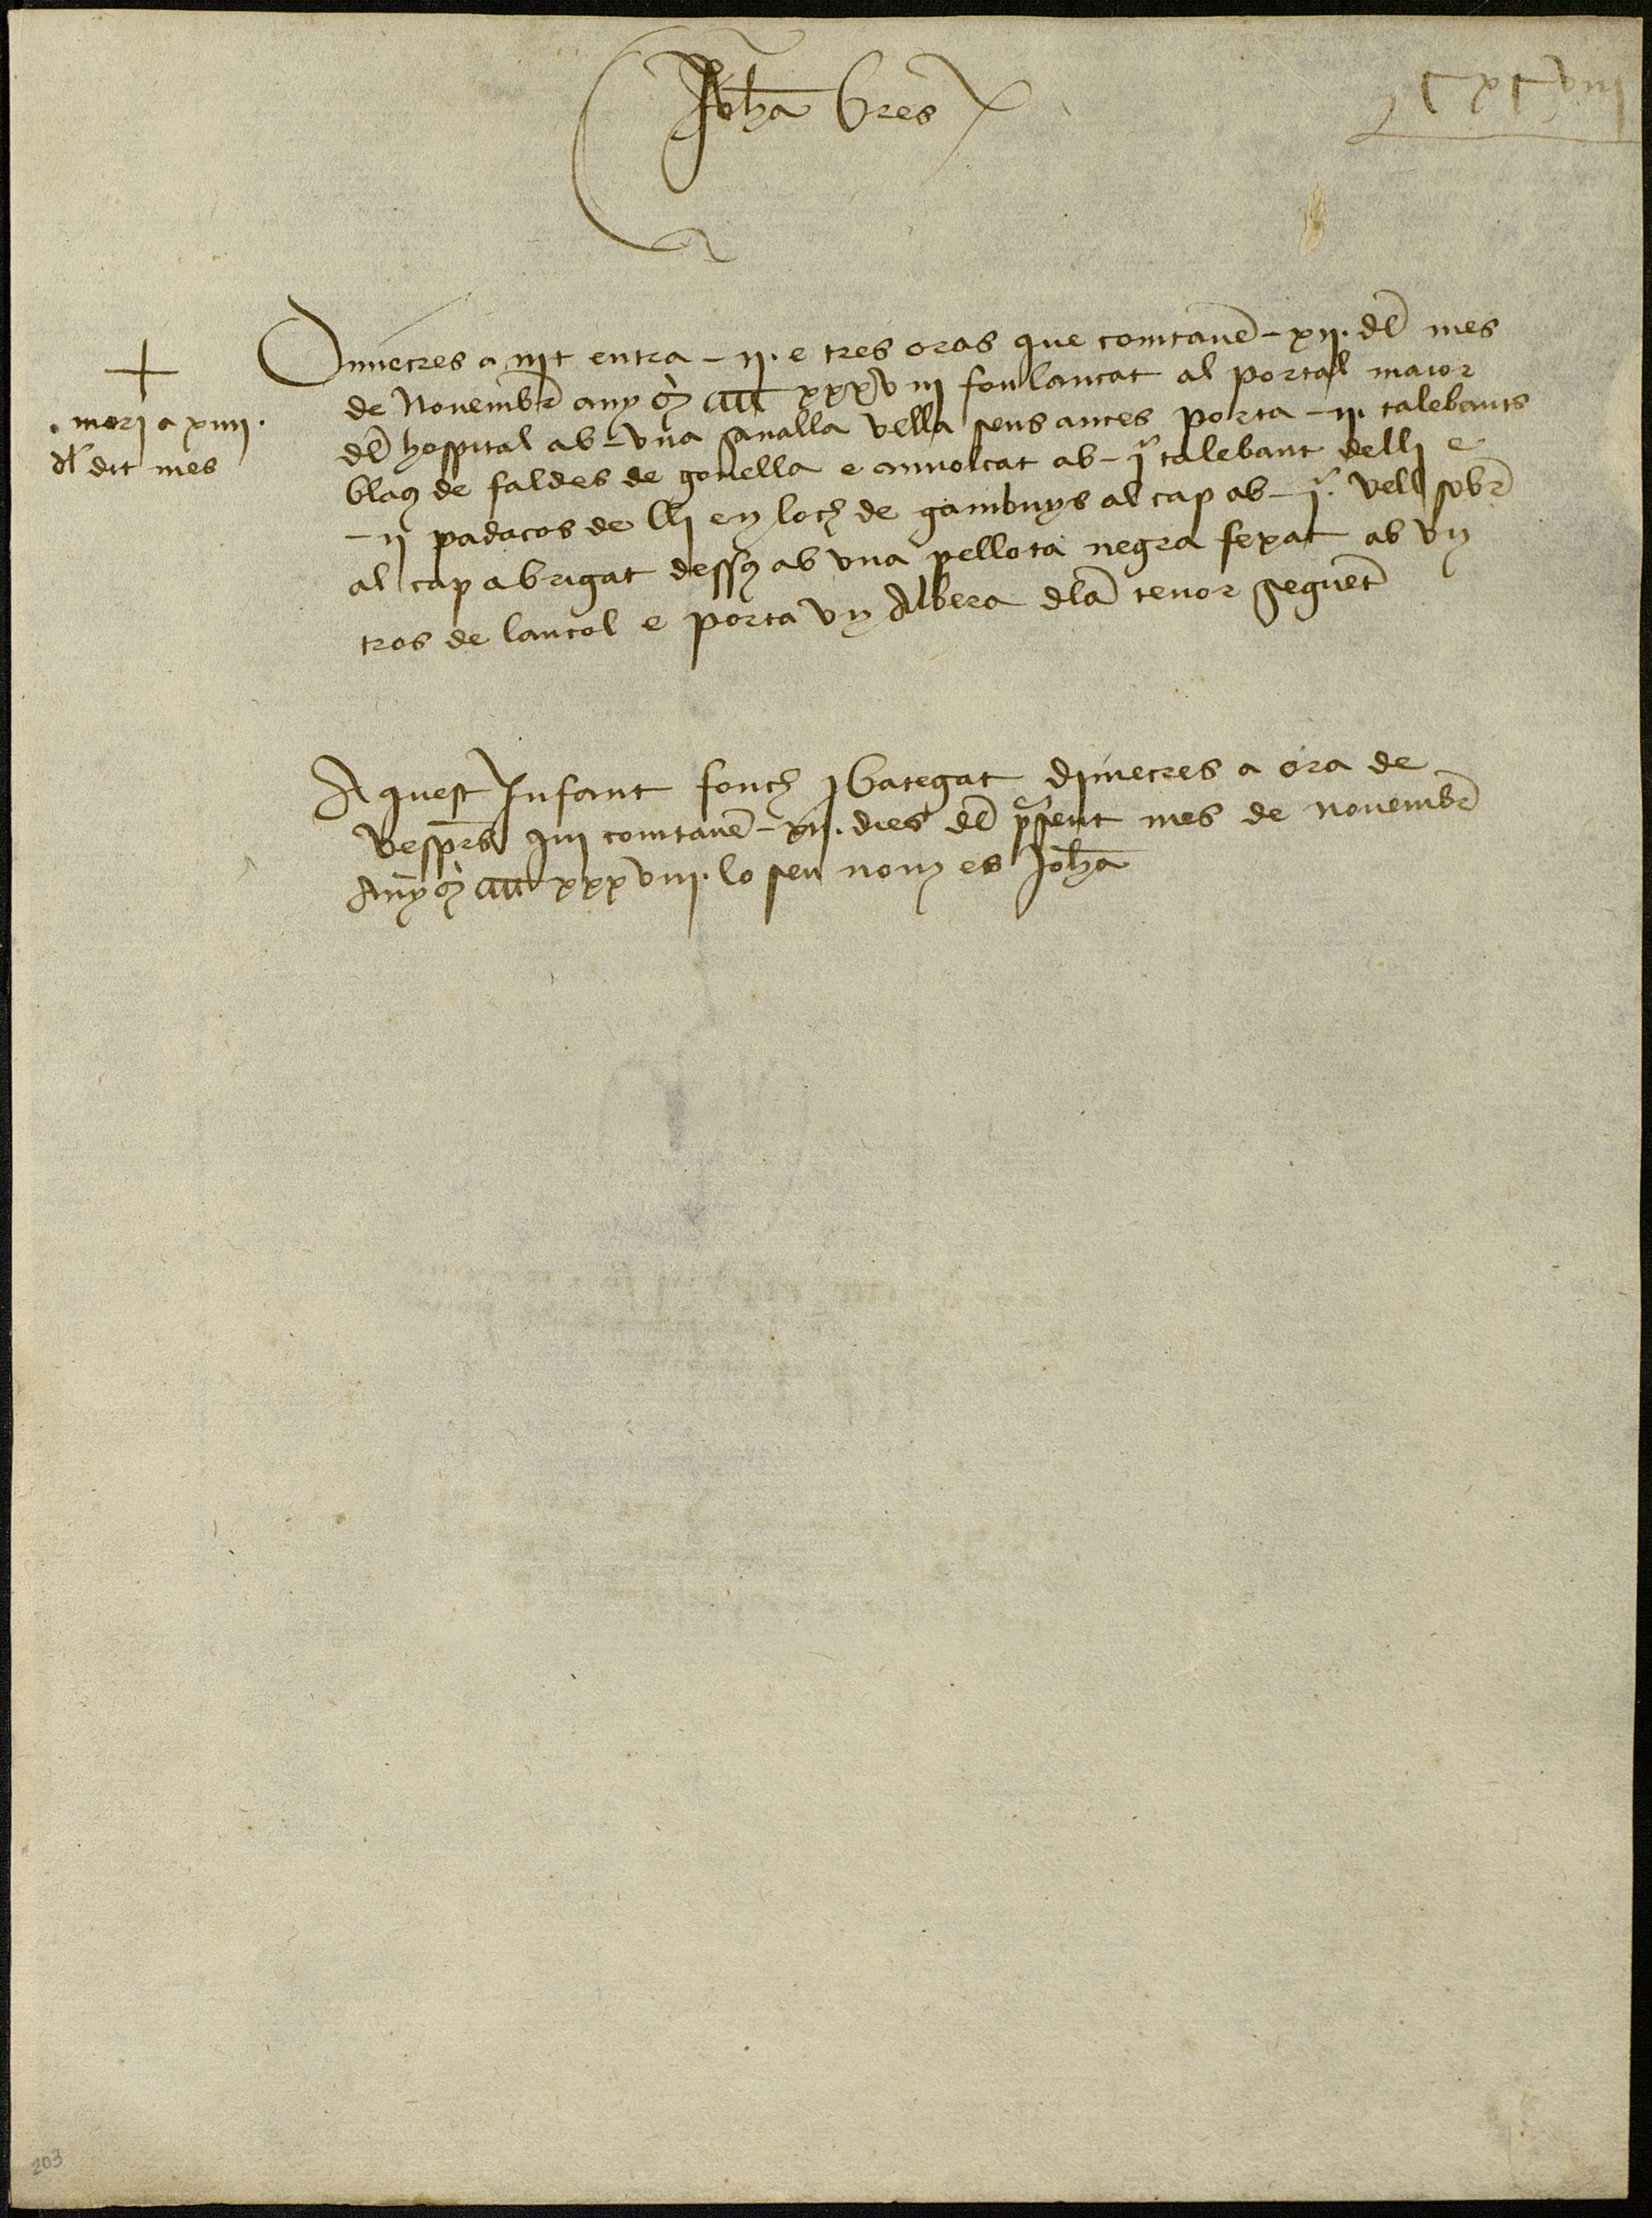 Joha Gres
CXCVIII
Dimecres a nit entra - ii· e tres oras que comtauē - xii· del mes
de Nouembre any M CCCC xxxviii fon lancat al portal maior
+
del hospital ab - una sanalla vella sens ances porta - ii· talebants
· mori a xiiii ·
dl dit mes
blaq de faldes de gonella e anuolcat ab - jᵃ talebant delli e
- ii padacos de lli en loch de gambuys al cap ab - jᵃ· vell sobre
al cap abrigat dessq ab una pellota negra fexat ab vn
tros de lancol e porta vn Albera dla tenor seguēt
Aquest Infant fonch ja bategat dimecres a ora de
vespres qui comtauē - xii· dies del pͬsent mes de nouembre
Any M CCCC xxxviii· lo seu nom es Joha
203